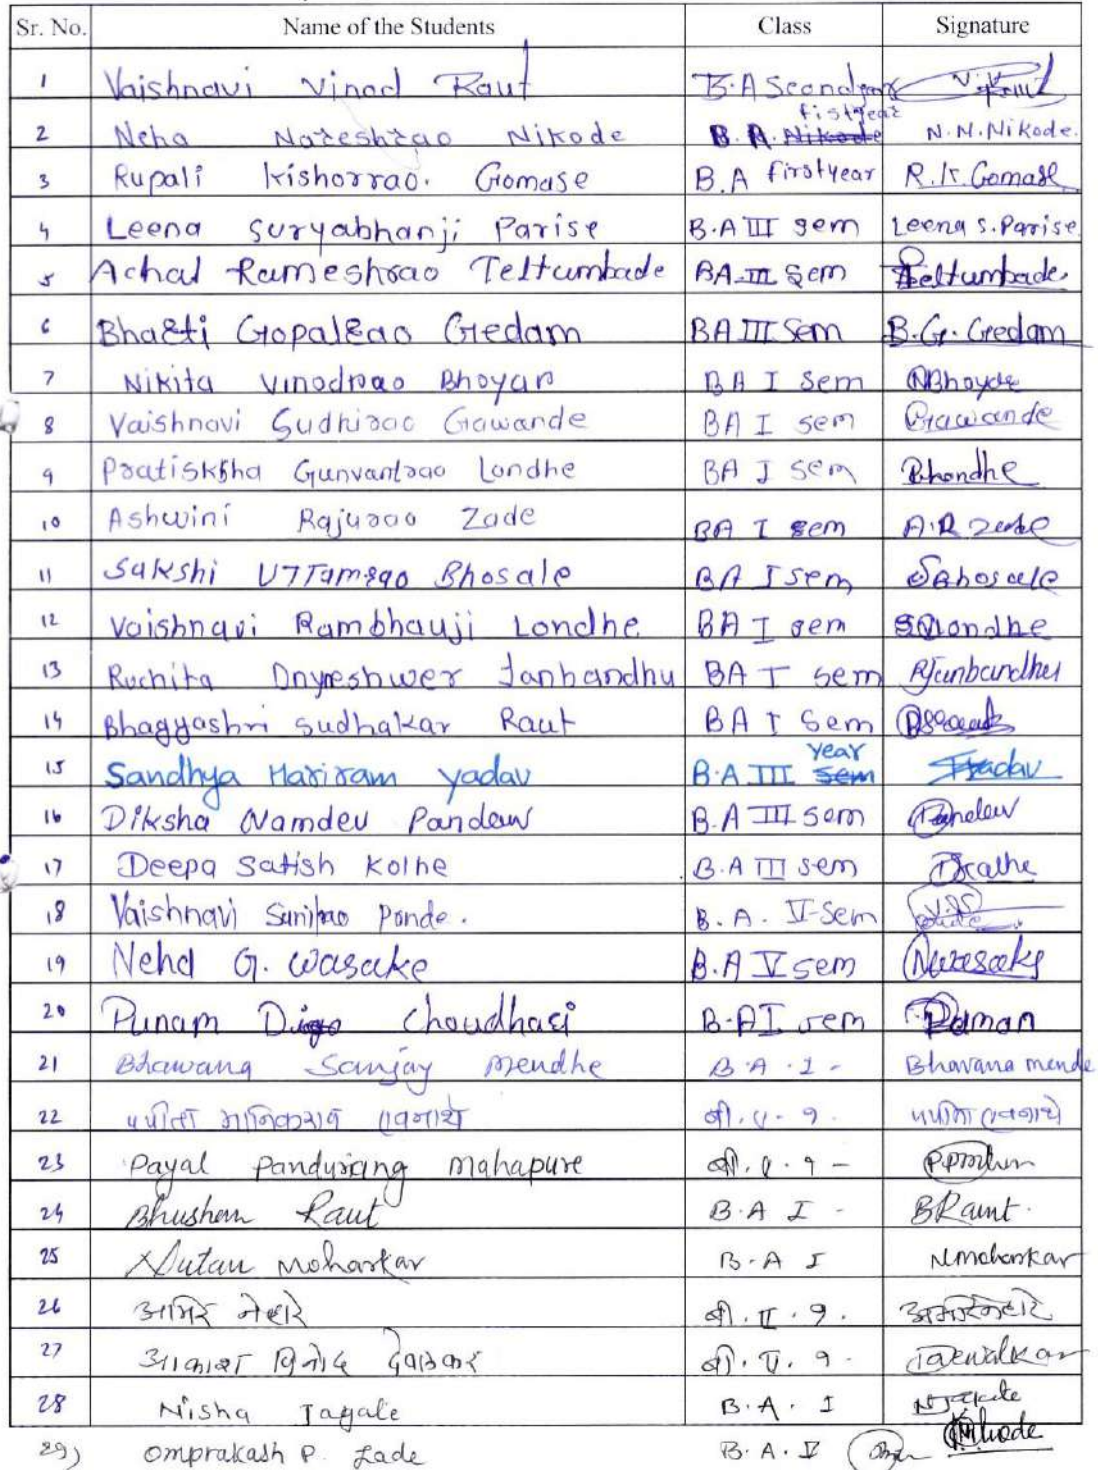 Sr. No. Name of the Students Class Signature
1 Vaishnavi Vinod Raut B.A Scondyear
2 Neha Nareshrao Nikode B.A. fistyear N.N.Nikode.
3 Rupali Kishorrao. Gomase B.A firstyear R.K.Gomase
4 Leena Suryabhanji Parise B.A III sem Leena S.Parise
5 Achal Rameshrao Teltumbade BA III Sem Teltumbade.
6 Bharti Gopalrao Gedam BA III Sem B.G. Gedam
7 Nikita Vinodrao Bhoyar BA I Sem
8 Vaishnavi Sudhirao Gawande BA I sem Gawande
9 Pratiskhha Gunvantrao Londhe BA I sem
10 Ashwini Rajurao Zade BA I sem A.R Zade
11 Sakshi UTTamrao Bhosale BA I sem SBhosale
12 Vaishnavi Rambhauji Londhe BA I sem
13 Ruchita Dnyneshwer Janbandhu BA I sem RJanbandhu
14 Bhagyashri Sudhakar Raut BA I Sem
15 Sandhya Hariram yadav B.A III year
16 Diksha Namdev Pandew B.A III sem Pandew
17 Deepa Satish Kolhe B.A III sem
18 Vaishnavi Sunilrao Ponde. B.A. V-Sem
19 Neha G. Wasake B.A V sem NWasake
20 Punam Choudhari B.A I sem
21 Bhawana Sanjay Mendhe B.A.I- Bhavana mende
22 बी.ए.१.
23 Payal Pandurang Mahapure बी.ए.१-
24 Bhushan Raut B.A I - BRaut.
25 Nutan Moharkar B.A I NMoharkar
26 बी.ए.१.
27 आकाश विनोद देवाळकर बी.ए.१. Dewalkar
28 Nisha Tagale B.A. I
29) Omprakash P. Lade B.A.V